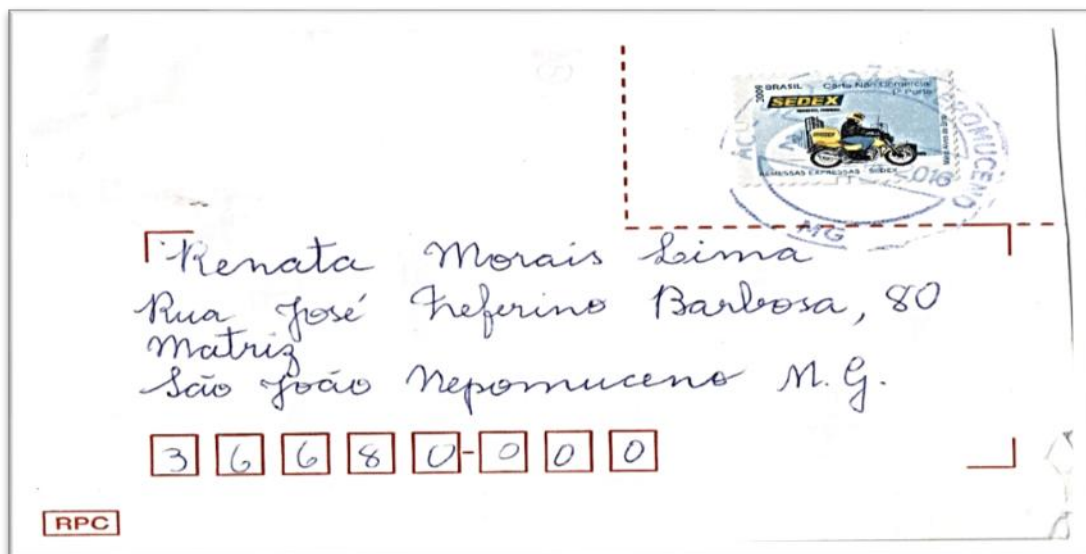 2009 BRASIL Carta Não Comercial
1º Porte
SEDEX
REMESSAS EXPRESSAS - SEDEX
2016
MG
Renata Morais Lima
Rua José Zeferino Barbosa, 80
Matriz
São João Nepomuceno M.G.
36680-000
RPC